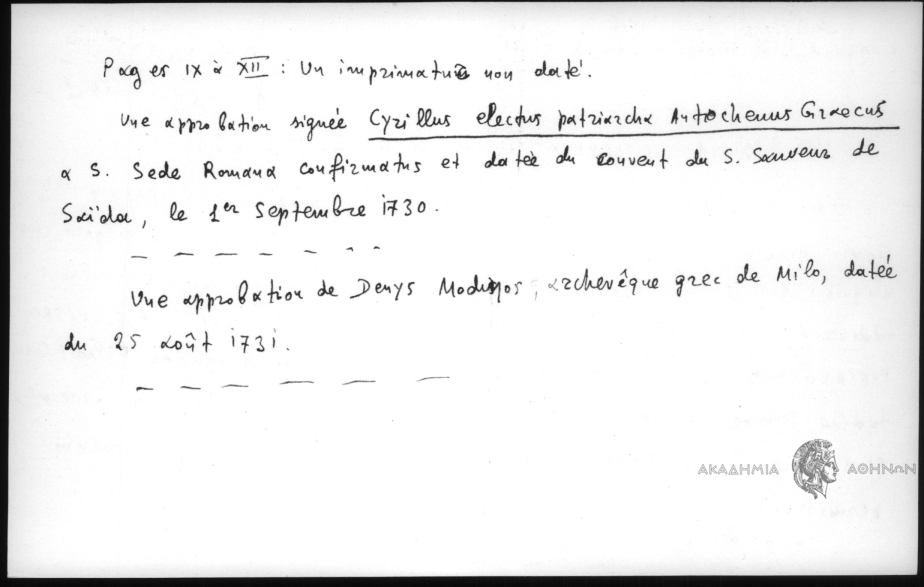 Pages IX à XII : Un imprimatur non daté.
Une approbation signée Cyrillus electus patriarcha Antiochenus Graecus
a S. Sede Romana confirmatus et datée du couvent du S. Sauveur de
Saïda, le 1er Septembre 1730.
— — — — — - -
Une approbation de Denys Modinos, archevêque grec de Milo, datée
du 25 août 1731.
— — — — — —
ΑΚΑΔΗΜΙΑ ΑΘΗΝΩΝ